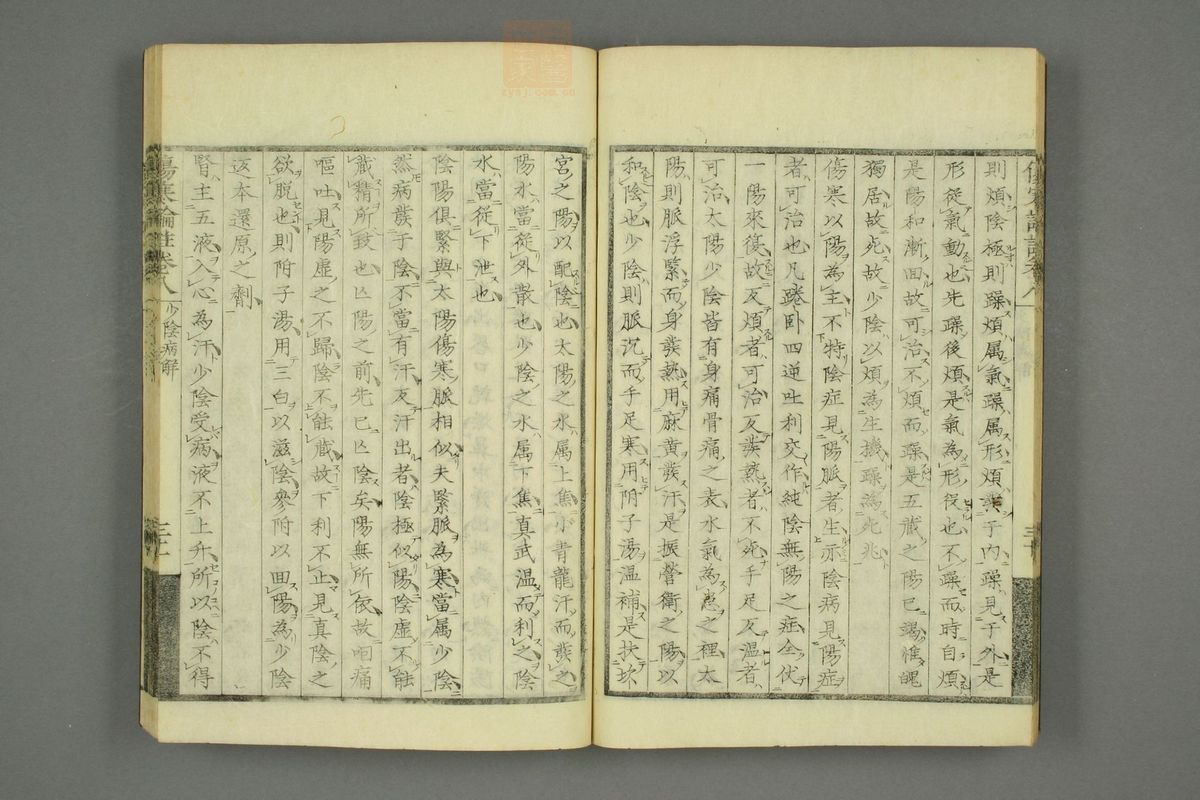 則煩陰極則躁煩属氣躁属形煩發于内躁見于外是
形從氣動也先躁後煩是氣為形役也不躁而時自煩
是陽和漸回故可治不煩而躁是五藏之陽已竭惟魄
獨居故死故少陰以煩為生機躁為死兆
傷寒以陽為主不特陰症見陽脈者生亦陰病見陽症
者可治也凡踡卧四逆吐利交作純陰無陽之症全伏
一陽來復故反煩者可治反發熱者不死手足反温者
可治太陽少陰皆有身痛骨痛之表水氣為患之裡太
陽則脈浮緊而身發熱用麻黄發汗是振營衛之陽以
和陰也少陰則脈沉而手足寒用附子湯温補是扶坎
宮之陽以配陰也太陽之水属上焦小青龍汗而發之
陽水當從外散也少陰之水属下焦真武温而利之陰
水當従下泄也
陰陽俱緊與太陽傷寒脈相似夫緊脈為寒當属少陰
然病發于陰不當有汗反汗出者陰極似陽陰虚不能
藏精所致也亾陽之前先已亾陰矣陽無所依故咽痛
嘔吐見陽虚之不歸陰不能藏故下利不止見真陰之
欲脱也則附子湯用三白以滋陰參附以回陽為少陰
返本還原之劑
腎主五液入心為汗少陰受病液不上升所以陰不得
傷寒論註卷八 少陰病解